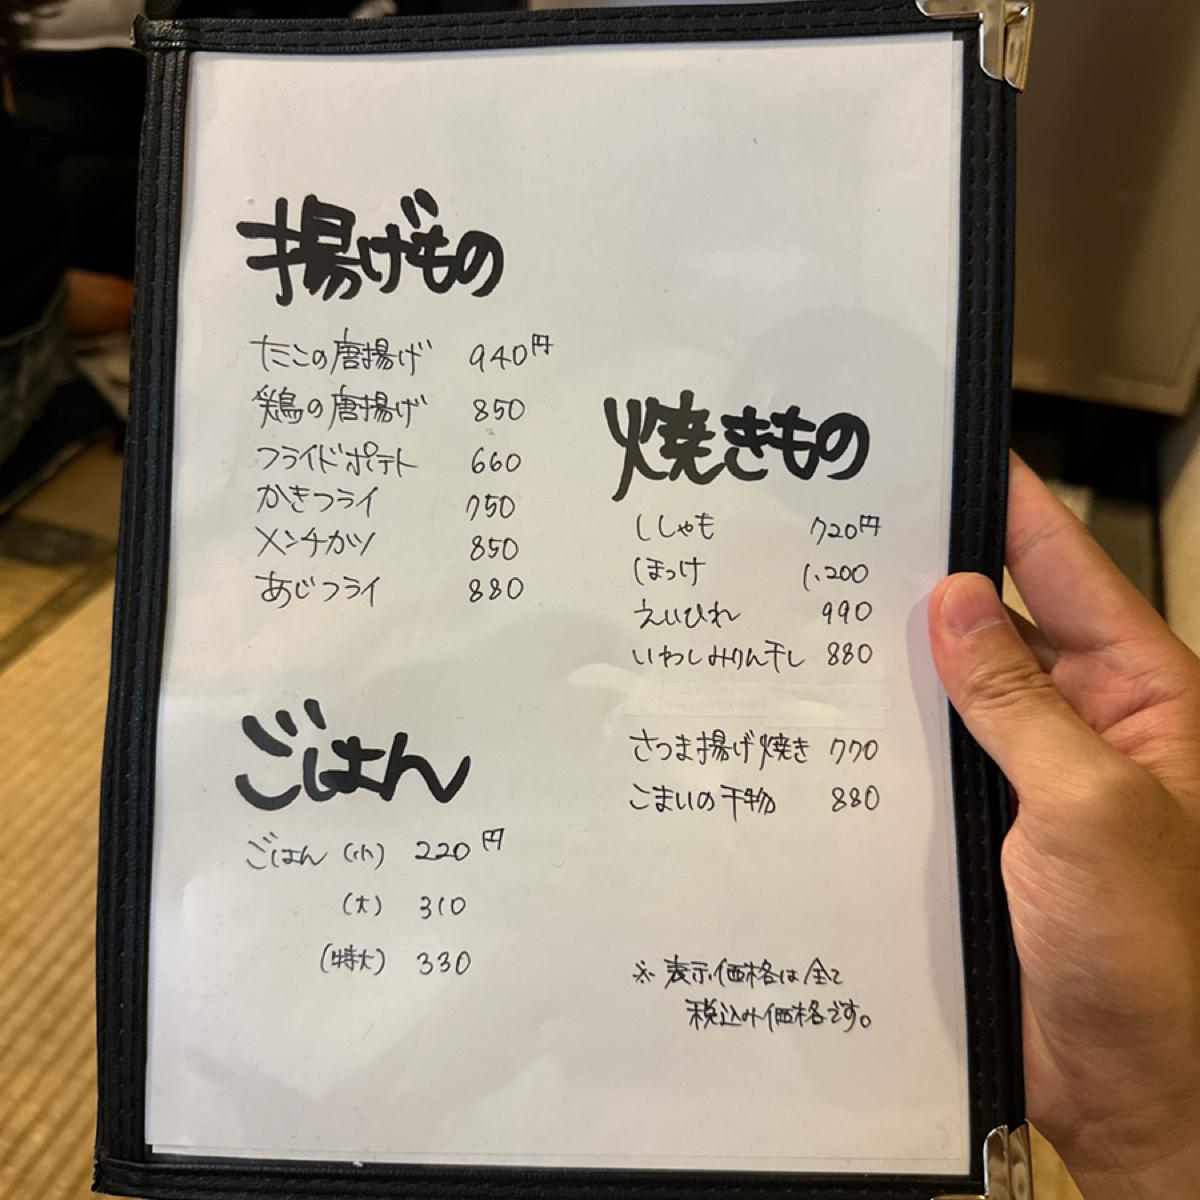 揚げもの
たこの唐揚げ 940円
鶏の唐揚げ 850
フライドポテト 660
かきフライ 750
メンチカツ 850
あじフライ 880
ごはん
ごはん (小) 220円
(大) 310
(特大) 330
焼きもの
ししゃも 720円
ほっけ 1,200
えいひれ 990
いわしみりん干し 880
さつま揚げ焼き 770
こまいの干物 880
※ 表示価格は全て
税込み価格です。